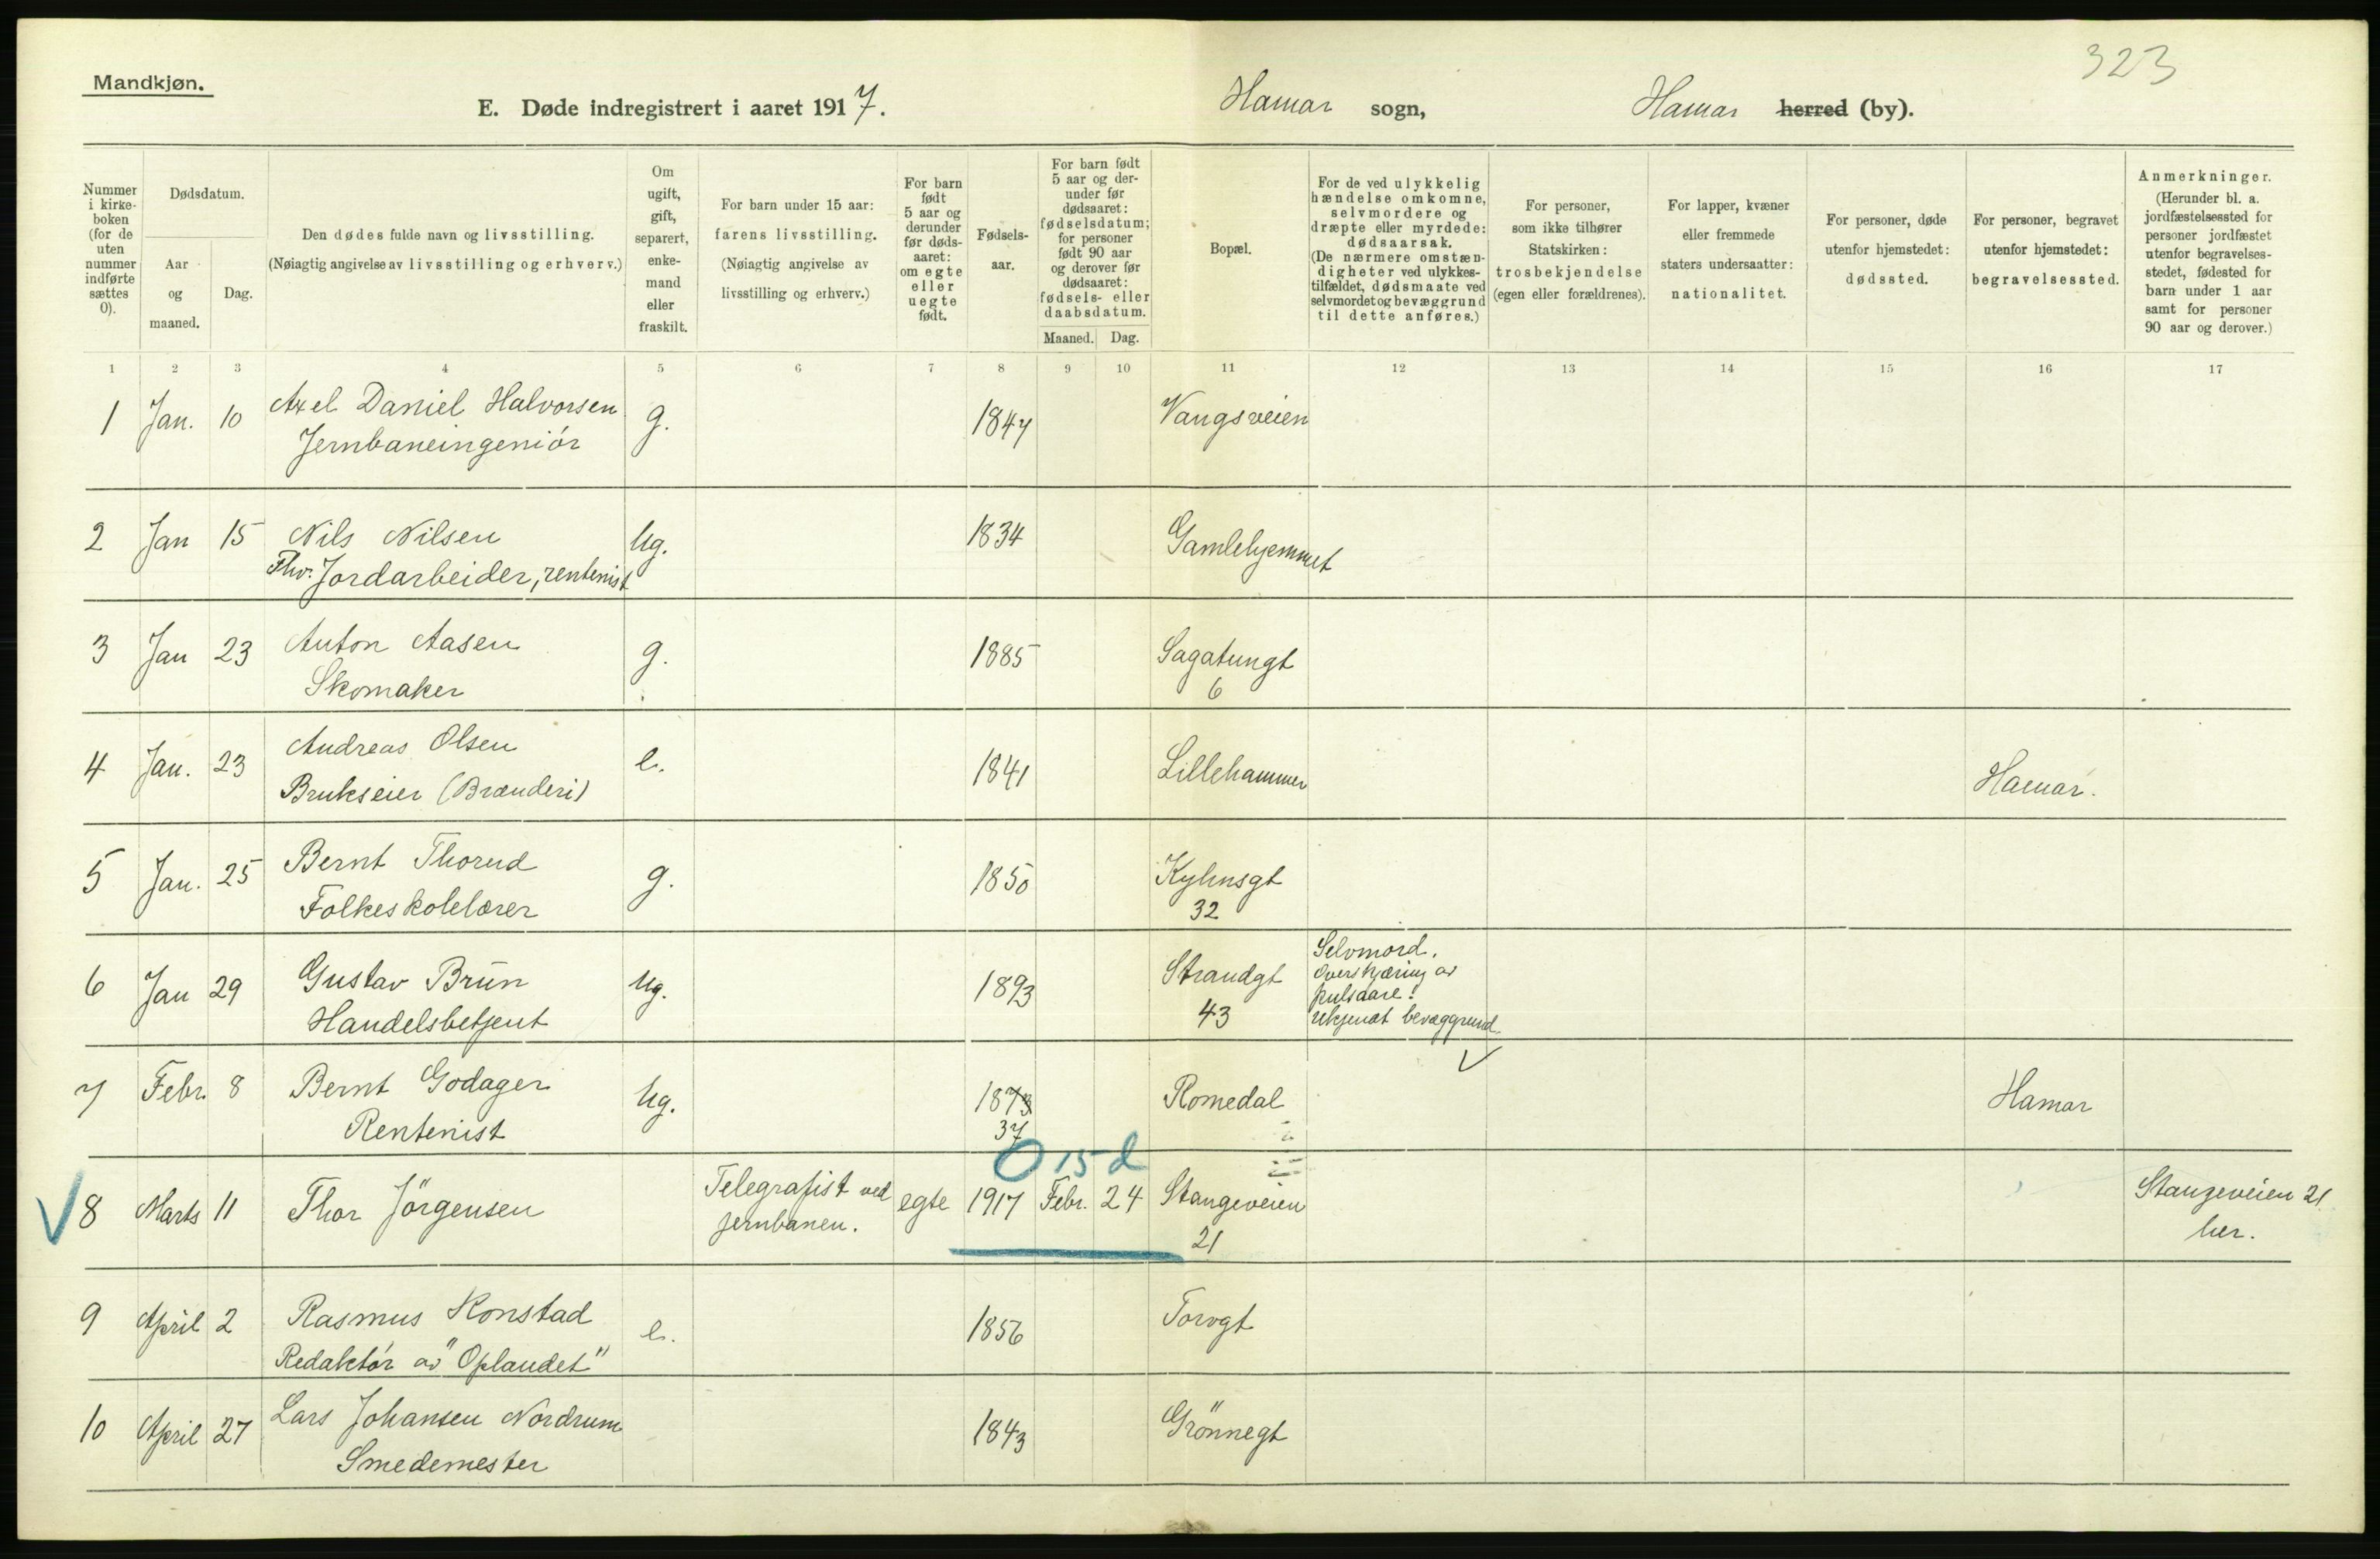 323
Mandkjøn.
E. Døde indregistrert i aaret 1917.
Hamar sogn,
Hamar herred (by).
Nummer
i kirke-
boken
(for de
uten
nummer
indførte
sættes
0).
Dødsdatum.
Aar
og
maaned.
Dag.
Den dødes fulde navn og livsstilling.
(Nøiagtig angivelse av livsstilling og erhverv.)
Om
ugift,
gift,
separert,
enke-
mand
eller
fraskilt.
For barn under 15 aar:
farens livsstilling.
(Nøiagtig angivelse av
livsstilling og erhverv.)
For barn
født
5 aar og
derunder
før døds-
aaret:
om egte
eller
uegte
født.
Fødsels-
aar.
For barn født
5 aar og der-
under før
dødsaaret:
fødselsdatum;
for personer
født 90 aar
og derover før
dødsaaret:
fødsels- eller
daabsdatum.
Maaned. Dag.
Bopæl.
For de ved ulykkelig
hændelse omkomne,
selvmordere og
dræpte eller myrdede:
dødsaarsak.
(De nærmere omstæn-
digheter ved ulykkes-
tilfældet, dødsmaate ved
selvmordet og bevæggrund
til dette anføres.)
For personer,
som ikke tilhører
Statskirken:
trosbekjendelse
(egen eller forældrenes).
For lapper, kvæner
eller fremmede
staters undersaatter:
nationalitet.
For personer, døde
utenfor hjemstedet:
dødssted.
For personer, begravet
utenfor hjemstedet:
begravelsessted.
Anmerkninger.
(Herunder bl. a.
jordfæstelsessted for
personer jordfæstet
utenfor begravelses-
stedet, fødested for
barn under 1 aar
samt for personer
90 aar og derover.)
1 2 3 4 5 6 7 8 9 10 11 12 13 14 15 16 17
1 Jan. 10 Axel Daniel Halvorsen g. 1847 Vangsveien
Jernbaneingeniör
2 Jan 15 Nils Nilsen Ug. 1834 Gamlehjemmet
Fhv. Jordarbeider, rentenist
3 Jan 23 Anton Aasen g. 1885 Sagatungt
Skomaker 6
4 Jan. 23 Andreas Olsen e. 1841 Lillehammer Hamar.
Brukseier (Brænderi)
5 Jan. 25 Bernt Thorud g. 1850 Kyhnsgt
Folkeskolelærer 32
6 Jan 29 Gustav Brun Ug. 1893 Strandgt
Handelsbetjent 43
Selvmord.
Overskjæring av
pulsaare.
ukjendt bevæggrund.
7 Febr. 8 Bernt Godager Ug. 1873 Romedal Hamar
Rentenist 37
0 15 d
8 Marts 11 Thor Jörgensen Telegrafist ved egte 1917 Febr. 24 Stangeveien Stangeveien 21
jernbanen. 21 her.
9 April 2 Rasmus Konstad e. 1856 Torvgt
Redaktör av "Oplandet"
10 April 27 Lars Johansen Nordrum 1843 Grönnegt
Smedemester